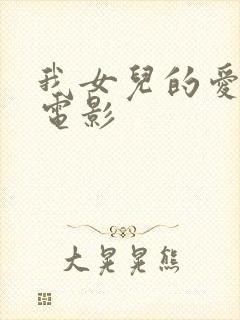 我女兒的愛
電影
大晃晃熊